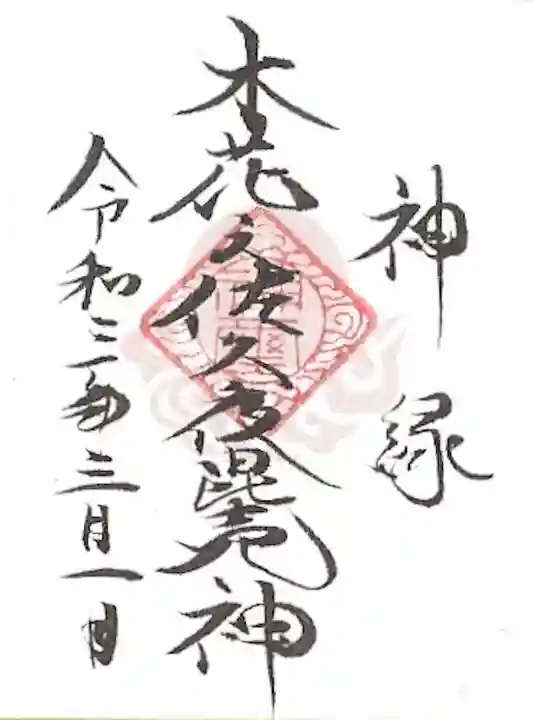 神縁
木花之佐久夜毘売神
令和三年三月一日